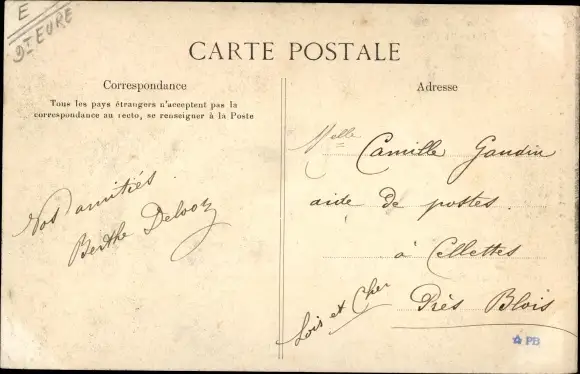 E
DT EURE
CARTE POSTALE
Correspondance
Tous les pays étrangers n'acceptent pas la
correspondance au recto, se renseigner à la Poste
Vos amitiés
Berthe Delooz
Adresse
Melle Camille Gaudin
aide de postes
à Cellettes
Près Blois
Loir et Cher
PB